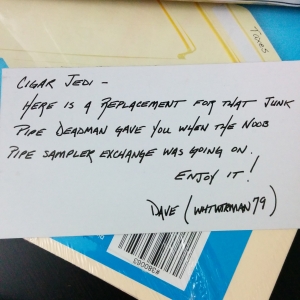 Times
CIGAR JEDI -
HERE IS A REPLACEMENT FOR THAT JUNK
PIPE DEADMAN GAVE YOU WHEN THE NOOB
PIPE SAMPLER EXCHANGE WAS GOING ON.
ENJOY IT!
DAVE (WHTWTRMAN79)
#380083